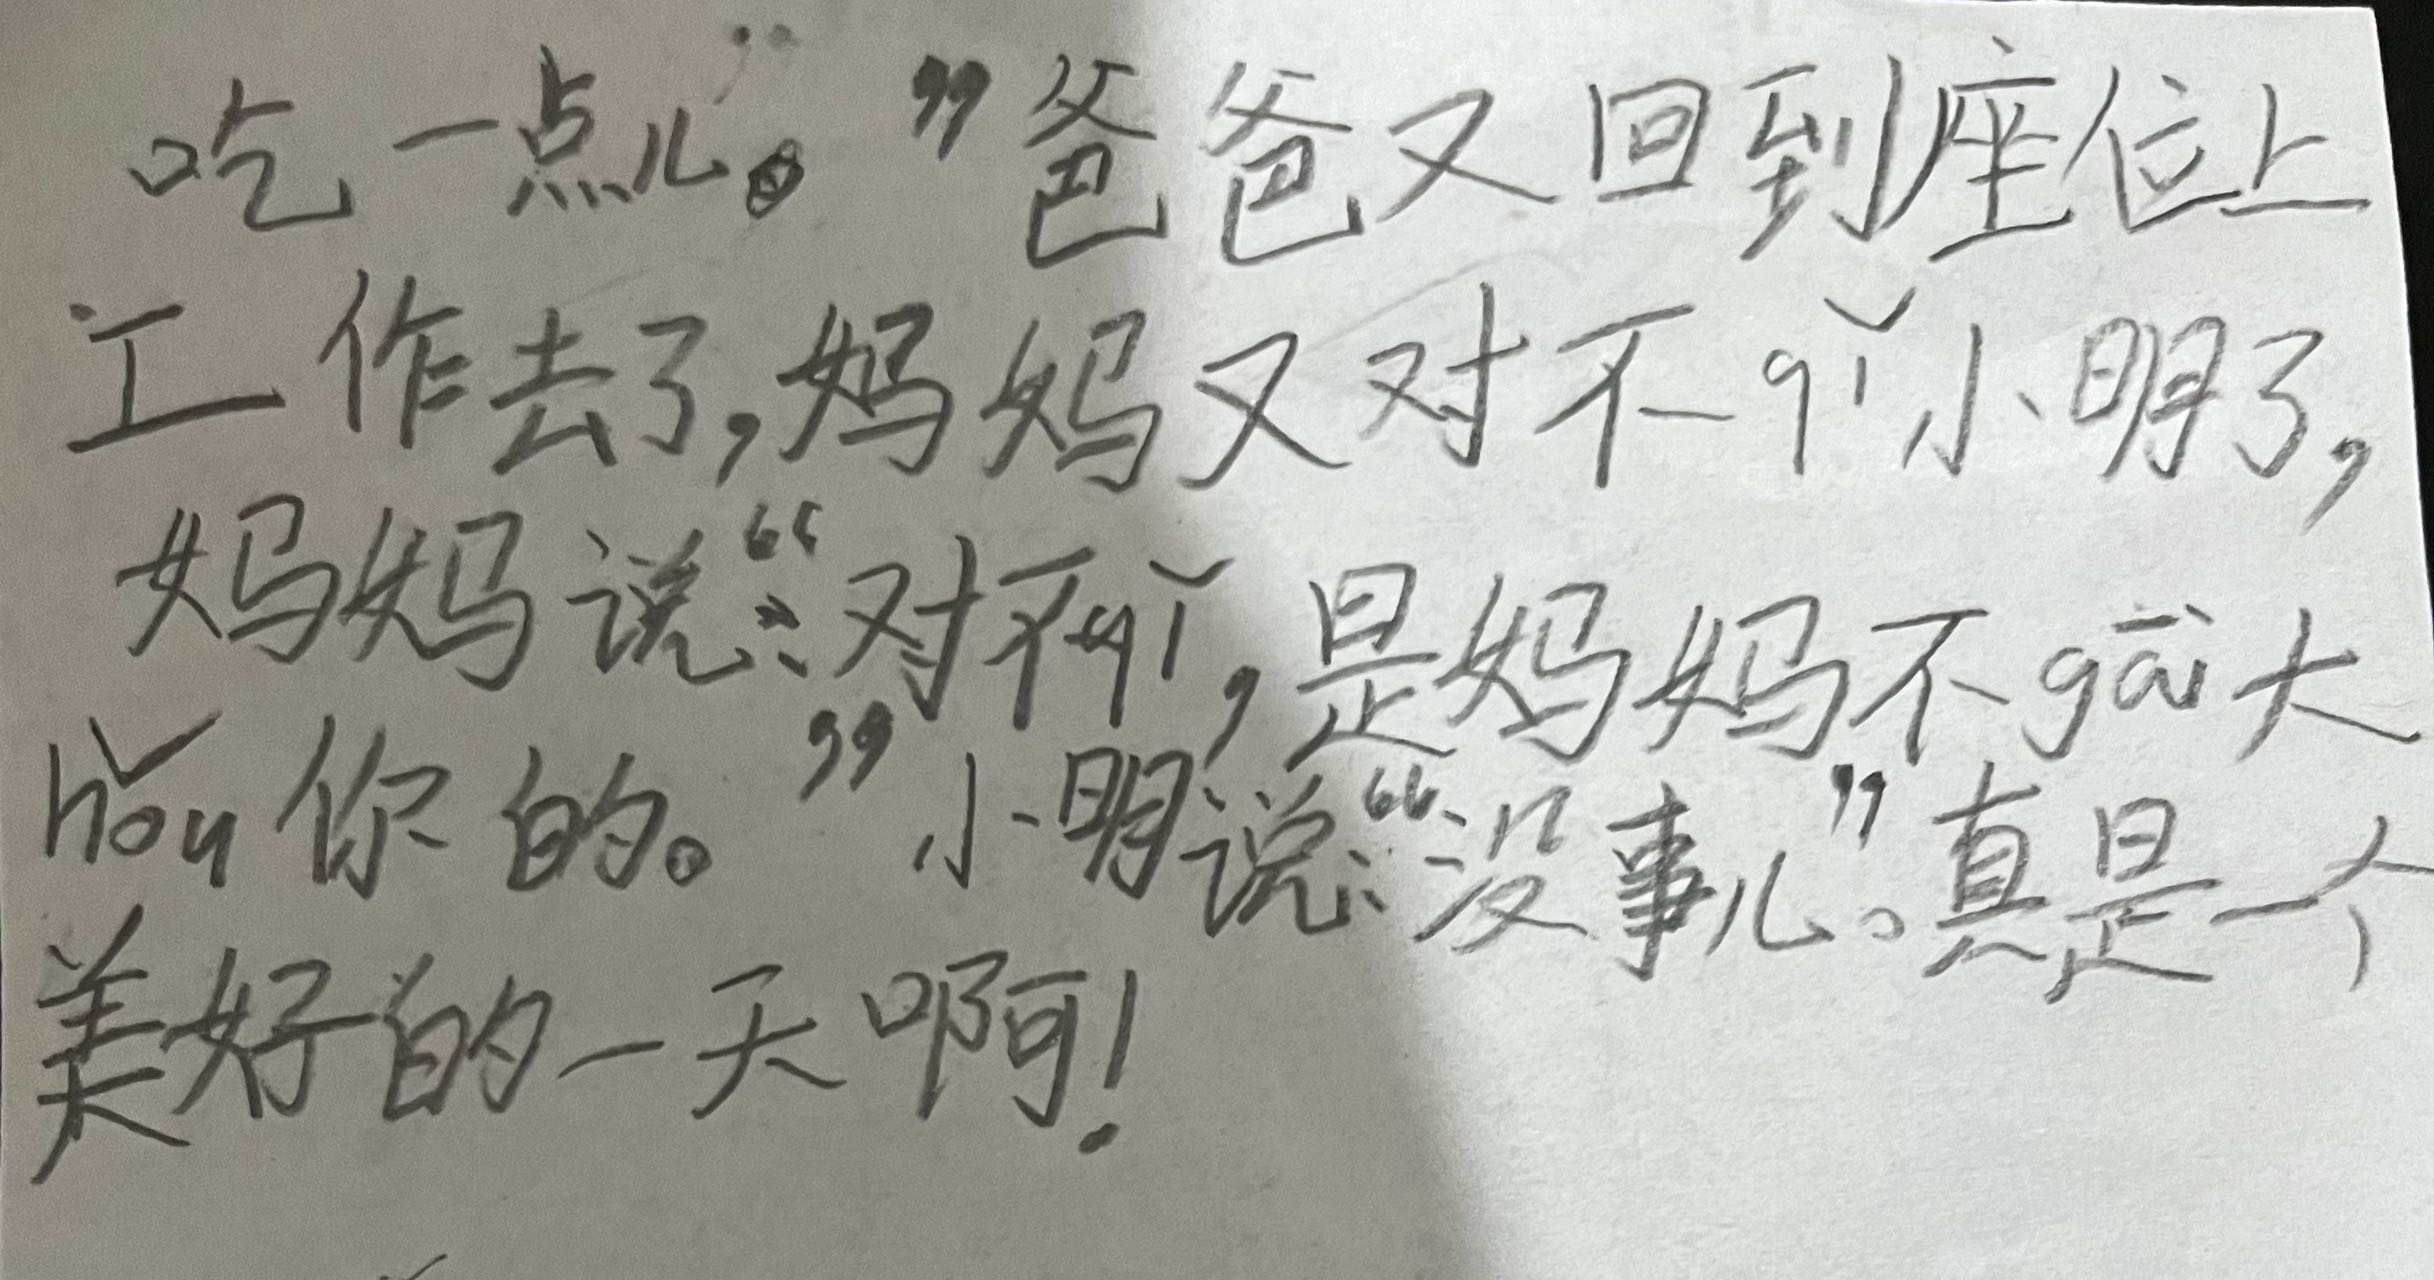 吃一点儿。”爸爸又回到座位上
工作去了,妈妈又对不qǐ小明了,
妈妈说:“对不qǐ,是妈妈不gāi大
hǒu你的。”小明说:“没事儿”。真是一个
美好的一天啊!